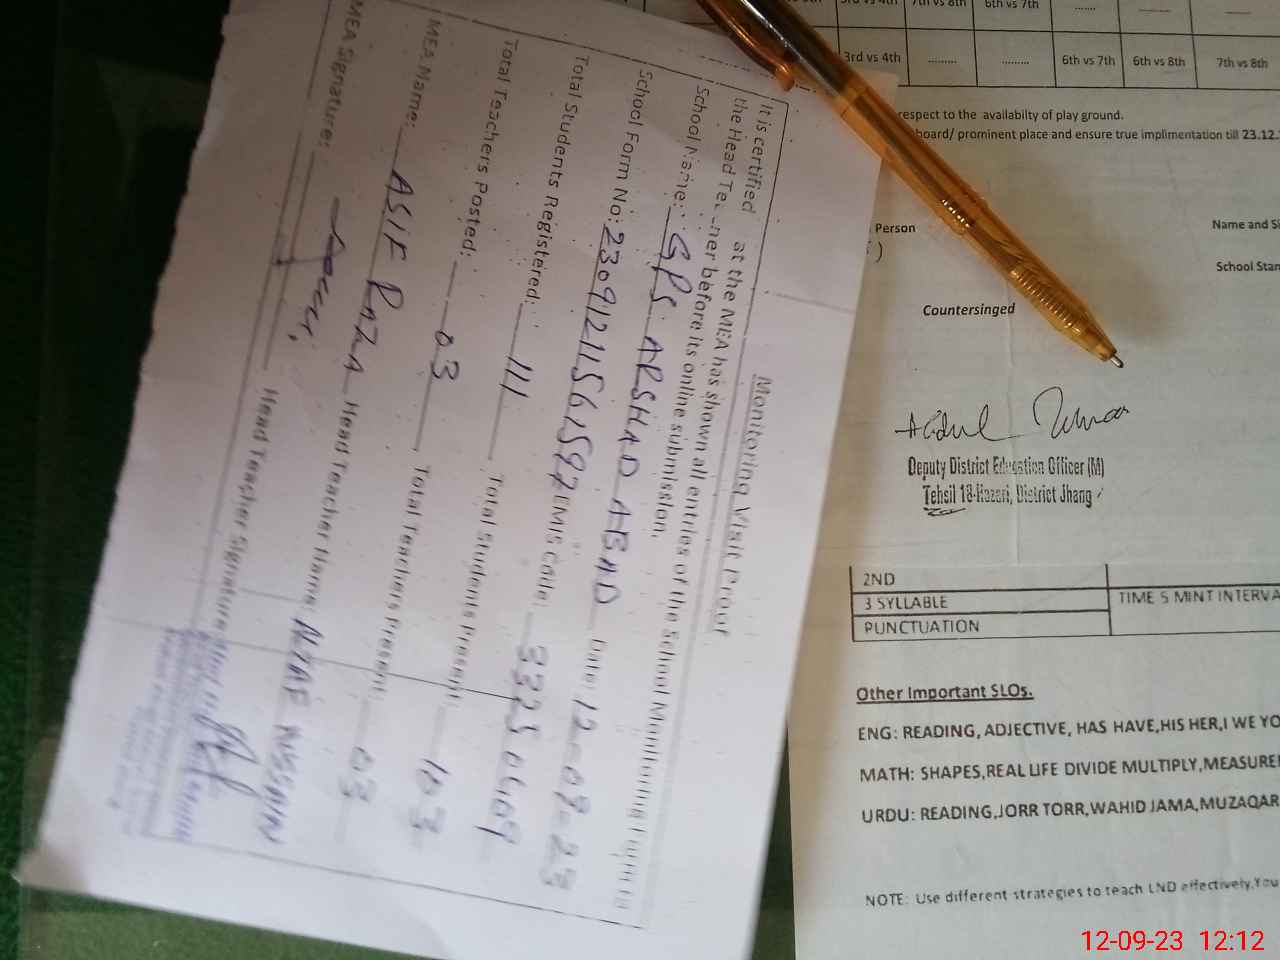 Monitoring Visit Proof
It is certified at the MEA has shown all entries of the School Monitoring Form to
the Head Te ner before its online submission.
School Name: GPS ARSHAD ABAD Date:
School Form No: EMIS Code: 33250609
Total Students Registered: 111 Total Students Present: 103
Total Teachers Posted: 03 Total Teachers Present: 03
MEA Name: ASIF RAZA Head Teacher Name: ALTAF HUSSAIN
MEA Signature: Head Teacher Signature:
3rd vs 4th 7th vs 8th 6th vs 7th ........ ........
3rd vs 4th ......... ......... 6th vs 7th 6th vs 8th 7th vs 8th
respect to the availabilty of play ground.
board/ prominent place and ensure true implimentation till 23.12.
Person Name and Si
) School Stan
Countersinged
Deputy District Education Officer (M)
Tehsil 18-Hazari, District Jhang
2ND
3 SYLLABLE TIME 5 MINT INTERVA
PUNCTUATION
Other Important SLOs.
ENG: READING, ADJECTIVE, HAS HAVE,HIS HER,I WE YO
MATH: SHAPES,REAL LIFE DIVIDE MULTIPLY,MEASURE
URDU: READING,JORR TORR,WAHID JAMA,MUZAQAR
NOTE: Use different strategies to teach LND effectively.You
12-09-23 12:12